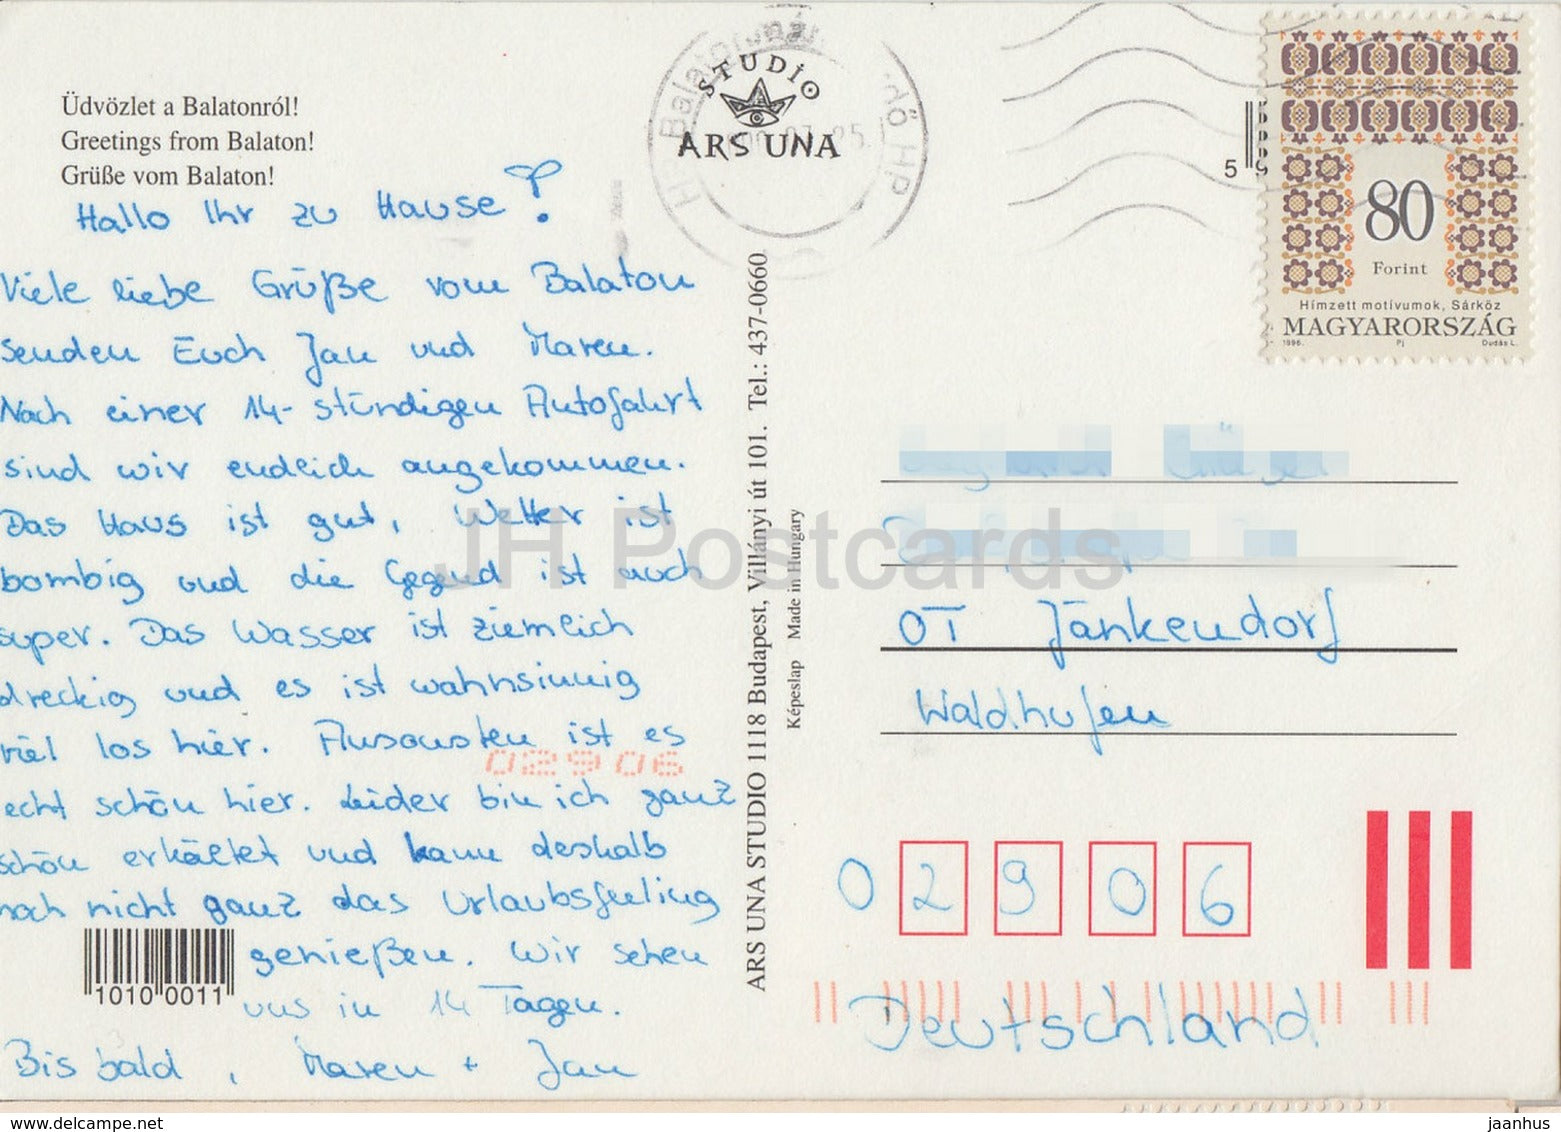 Üdvözlet a Balatonról!
Greetings from Balaton!
Grüße vom Balaton!
Hallo Ihr zu Hause!
Viele liebe Grüße vom Balaton
senden Euch Jan und Maren.
Nach einer 14-stündigen Autofahrt
sind wir endlich angekommen.
Das Haus ist gut, Wetter ist
bombig und die Gegend ist auch
super. Das Wasser ist ziemlich
dreckig und es ist wahnsinnig
viel los hier. Ansonsten ist es
echt schön hier. Leider bin ich ganz
schön erkältet und kann deshalb
noch nicht ganz das Urlaubsfeeling
genießen. Wir sehen
uns in 14 Tagen.
Bis bald, Maren + Jan
02906
1010 0011
STUDIO
ARS UNA
ARS UNA STUDIO 1118 Budapest, Villányi út 101. Tel.: 437-0660
Képeslap Made in Hungary
80
Forint
Hímzett motívumok, Sárköz
MAGYARORSZÁG
1996. Pj Dudás L.
OT Jänkendorf
Waldhufen
0 2 9 0 6
Deutschland
JH Postcards
www.delcampe.net
jaanhus